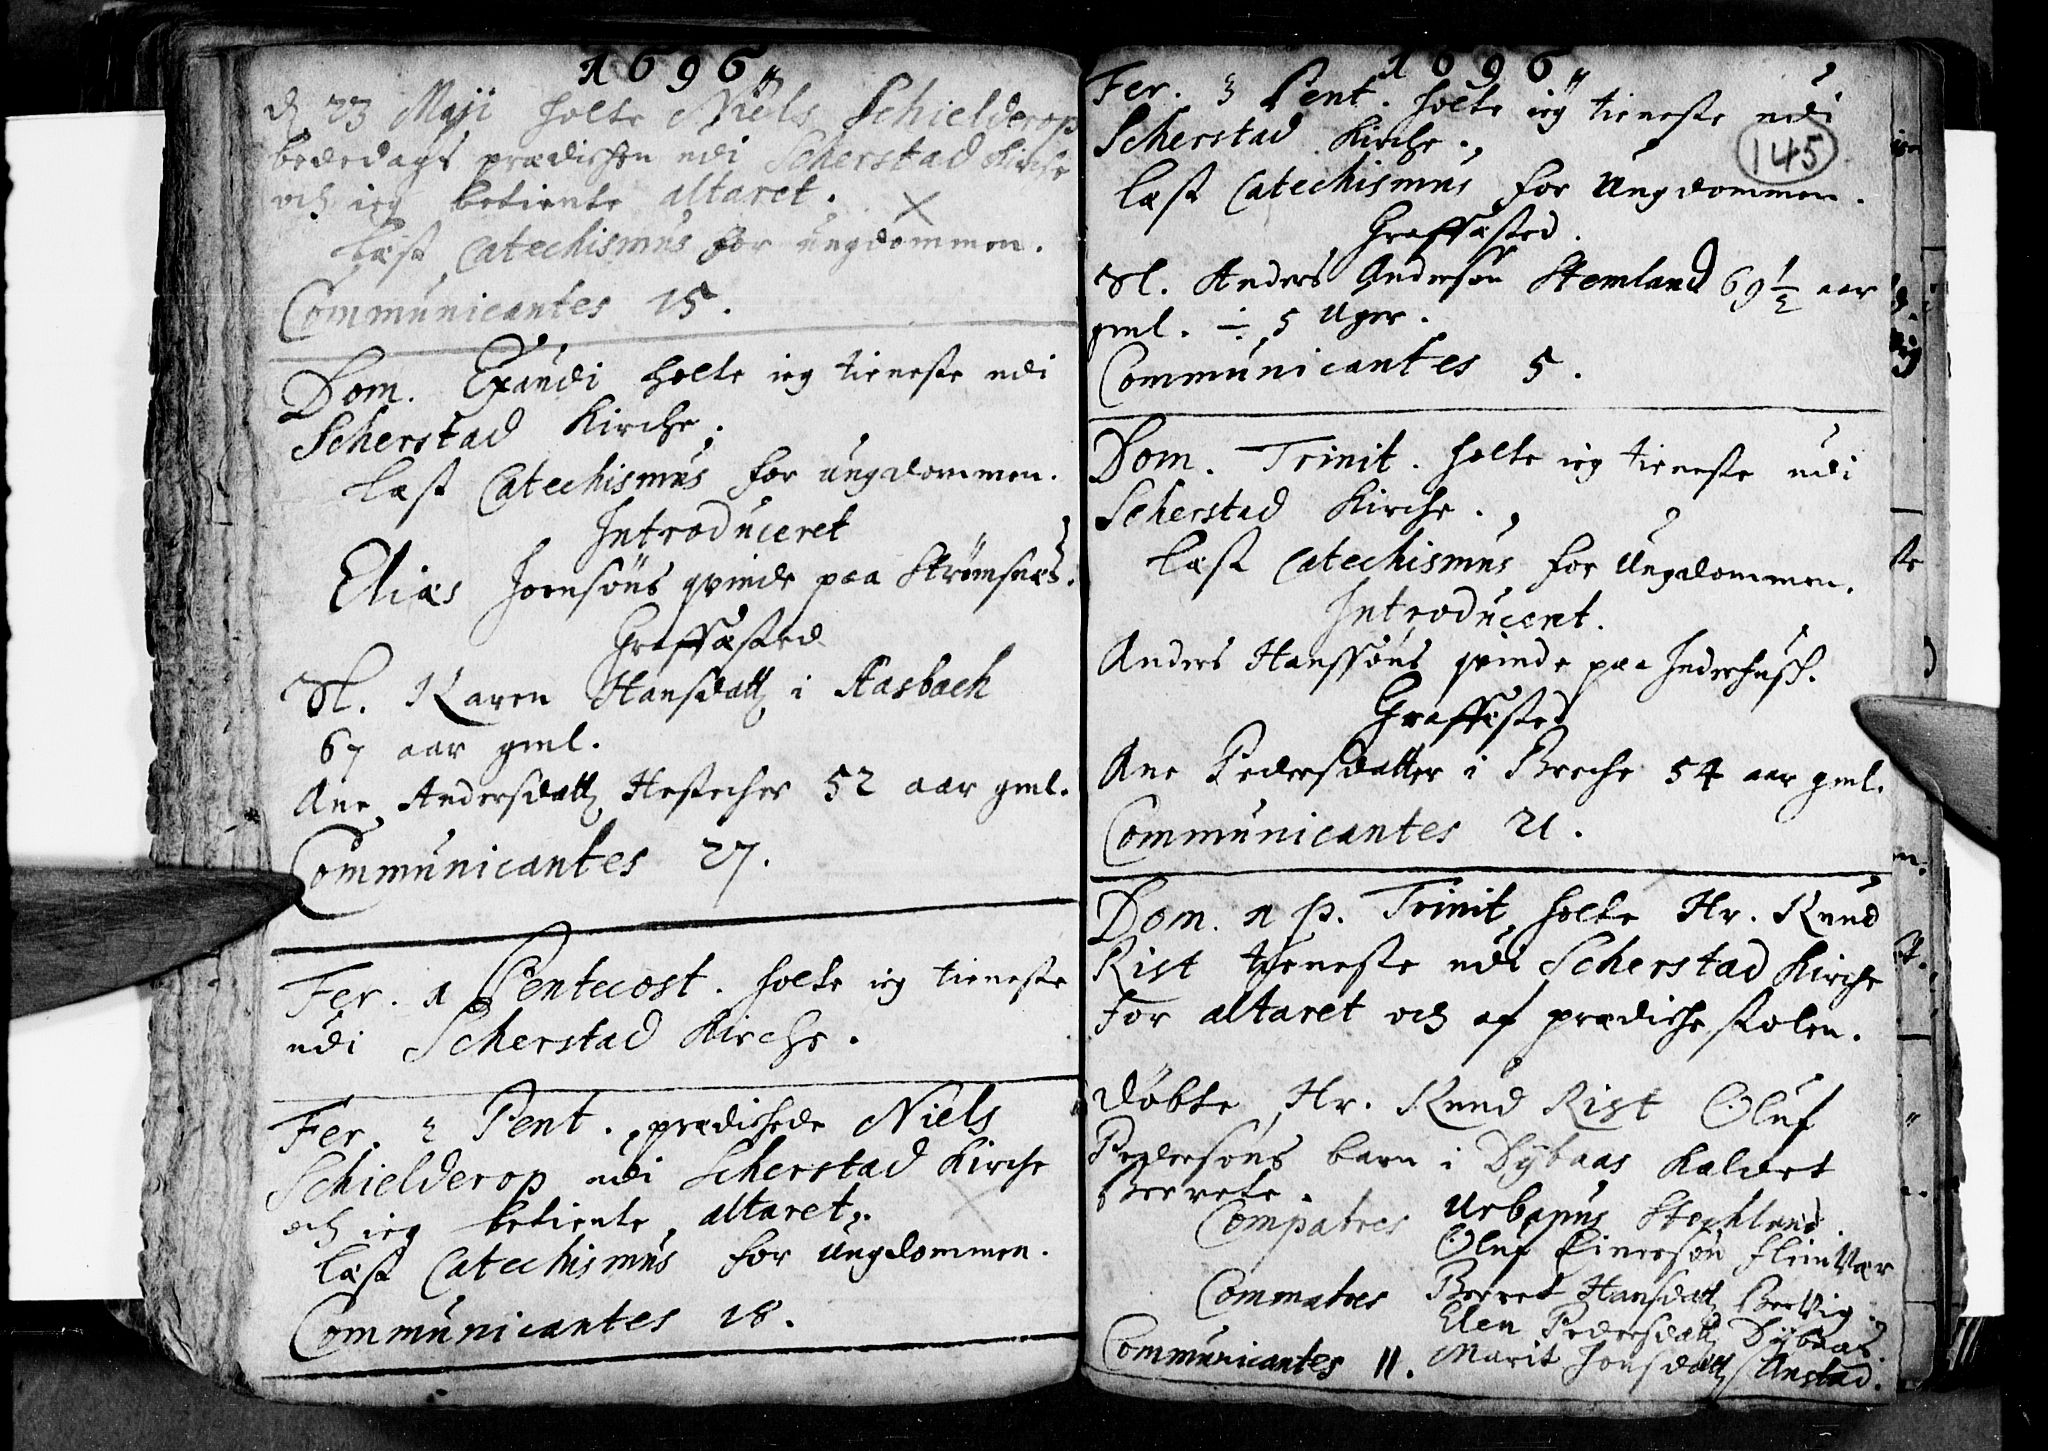 1696
d 23 Maji holte Niels Schielderop
bededags prædichen udi Scherstad Kirche
och ieg betiente altaret.
Læst Catechismus for ungdommen.
Communicantes 15.
Dom. Exaudi holte ieg tieneste udi
Scherstad Kirche.
Læst Catechismus for ungdommen.
Introduceret
Elias Joensøns qvinde paa Strømsnæs.
Graffæsted
Sl. Karen Hansdatt i Aasbach
67 aar gml.
Ane Andersdatt Hestecher 52 aar gml.
Communicantes 27.
Fer. 1 Pentecost. holte ieg tieneste
udi Scherstad Kirche.
Fer. 2 Pent. prædichede Niels
Schielderop udi Scherstad Kirche
och ieg betiente altaret.
Læst Catechismus for ungdommen.
Communicantes 18.
1696
145
Fer. 3 Pent. holte ieg tieneste udi
Scherstad Kirche.
Læst Catechismus for Ungdommen.
Graffæsted.
Sl. Anders Andersøn Stemland 69 1/2 aar
gml. ÷ 5 Uger.
Communicantes 5.
Dom. Trinit. holte ieg tieneste udi
Scherstad Kirche.
Læst Catechismus for Ungdommen.
Introducent.
Anders Hanssøns qvinde paa Inderhusß.
Graffæsted
Ane Pedersdatter i Breche 54 aar gml.
Communicantes 21.
Dom. 1 p. Trinit holte Hr. Knud
Rist tieneste udi Scherstad Kirche
for altaret och af prædiche stolen.
Døbte Hr. Knud Rist Oluf
Pedersøns barn i Dybaas kaldet
Berrete.
Compatres Urbanus Stechland.
Oluf Einersøn Flinvær
Commatres Berret Hansdatt Beevig
Elen Pedersdatt Dybaas.
Communicantes 11. Marit Jonsdatt Anstad.